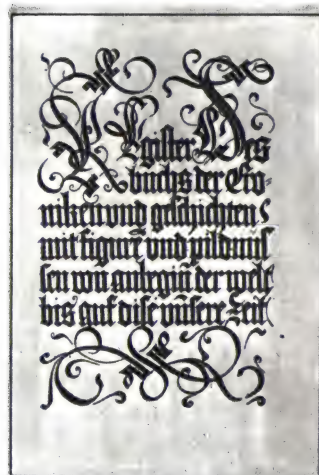 REgister Des
buchs der Cro-
niken und geschichten
mit figurē und pildnus
sen von anbegin̄ der welt
bis auf dise unnsere zeit